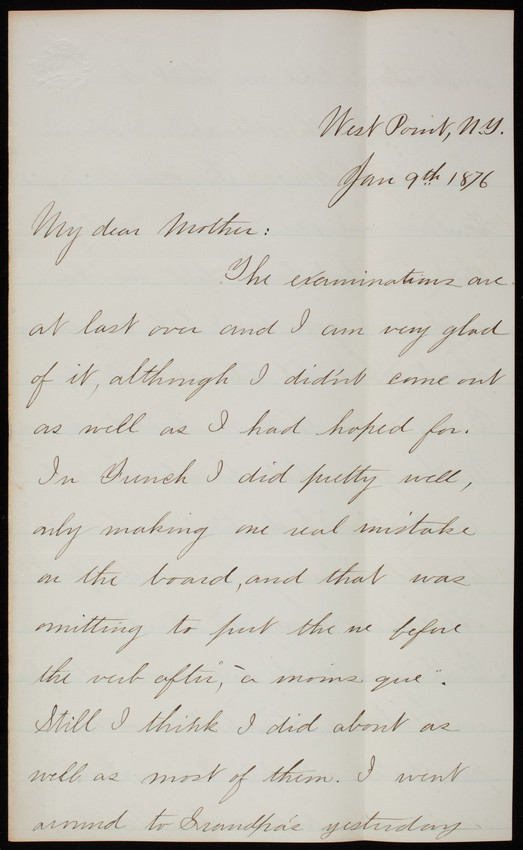 West Point, N.Y.
Jan 9th 1876
My dear Mother:
The examinations are
at last over and I am very glad
of it, although I did'nt come out
as well as I had hoped for.
In French I did pretty well,
only making one real mistake
on the board, and that was
omitting to put the ne before
the verb after, "a moins que".
Still I think I did about as
well as most of them. I went
around to Grandpa's yesterday